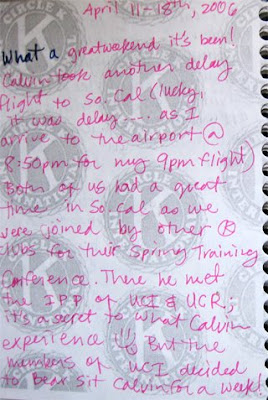 April 11-18th, 2006
What a great weekend it's been!
Calvin took another delay
flight to So. Cal (lucky,
it was delay .... as I
arrive to the airport @
8:50pm for my 9pm flight)
Both of us had a great
time in So Cal as we
were joined by other K
clubs for their Spring Training
Conference. There he met
the IPP of UCI & UCR;
it's a secret to what Calvin
experience!! But the
members of UCI decided
to Bear Sit Calvin for a week!
CIRCLE K
INTERNATIONAL